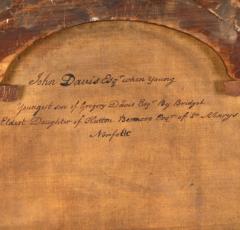 John Davis Esqr when Young
Youngest son of Gregory Davis Esqr By Bridget
Eldest Daughter of Hutton Esqr of St Marys
Norfolk